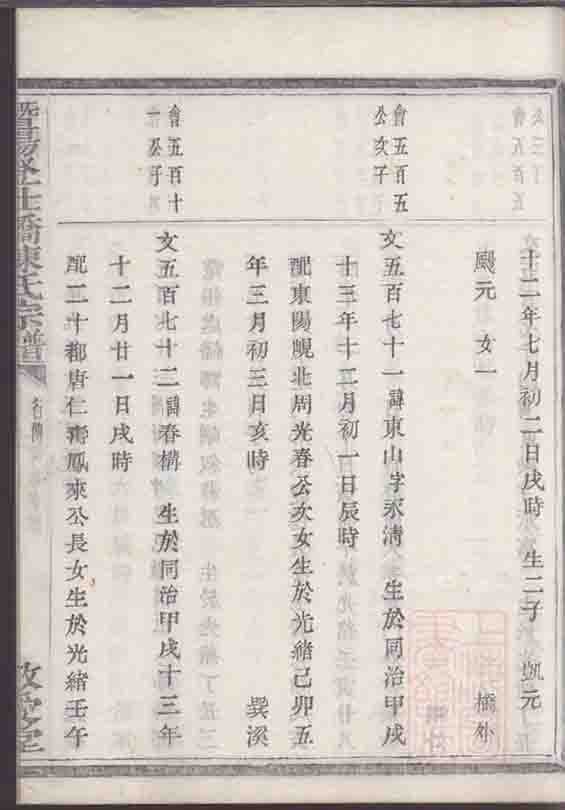 公三子
會五百五
十二年七月初二日戌時 生二子 凱元
颺元 女一 橋外
會五百五
公次子
文五百七十一諱東山字永淸 生於同治甲戌
十三年十二月初一日辰時
配東陽峴北周光春公次女生於光緖己卯五
年三月初三日亥時 巽溪
會五百十
一公子
文五百七十二諱春構 生於同治甲戌十三年
十二月廿一日戌時
配二十都唐仁 鳳來公長女生於光緖壬午
橋陳氏宗譜
行傳